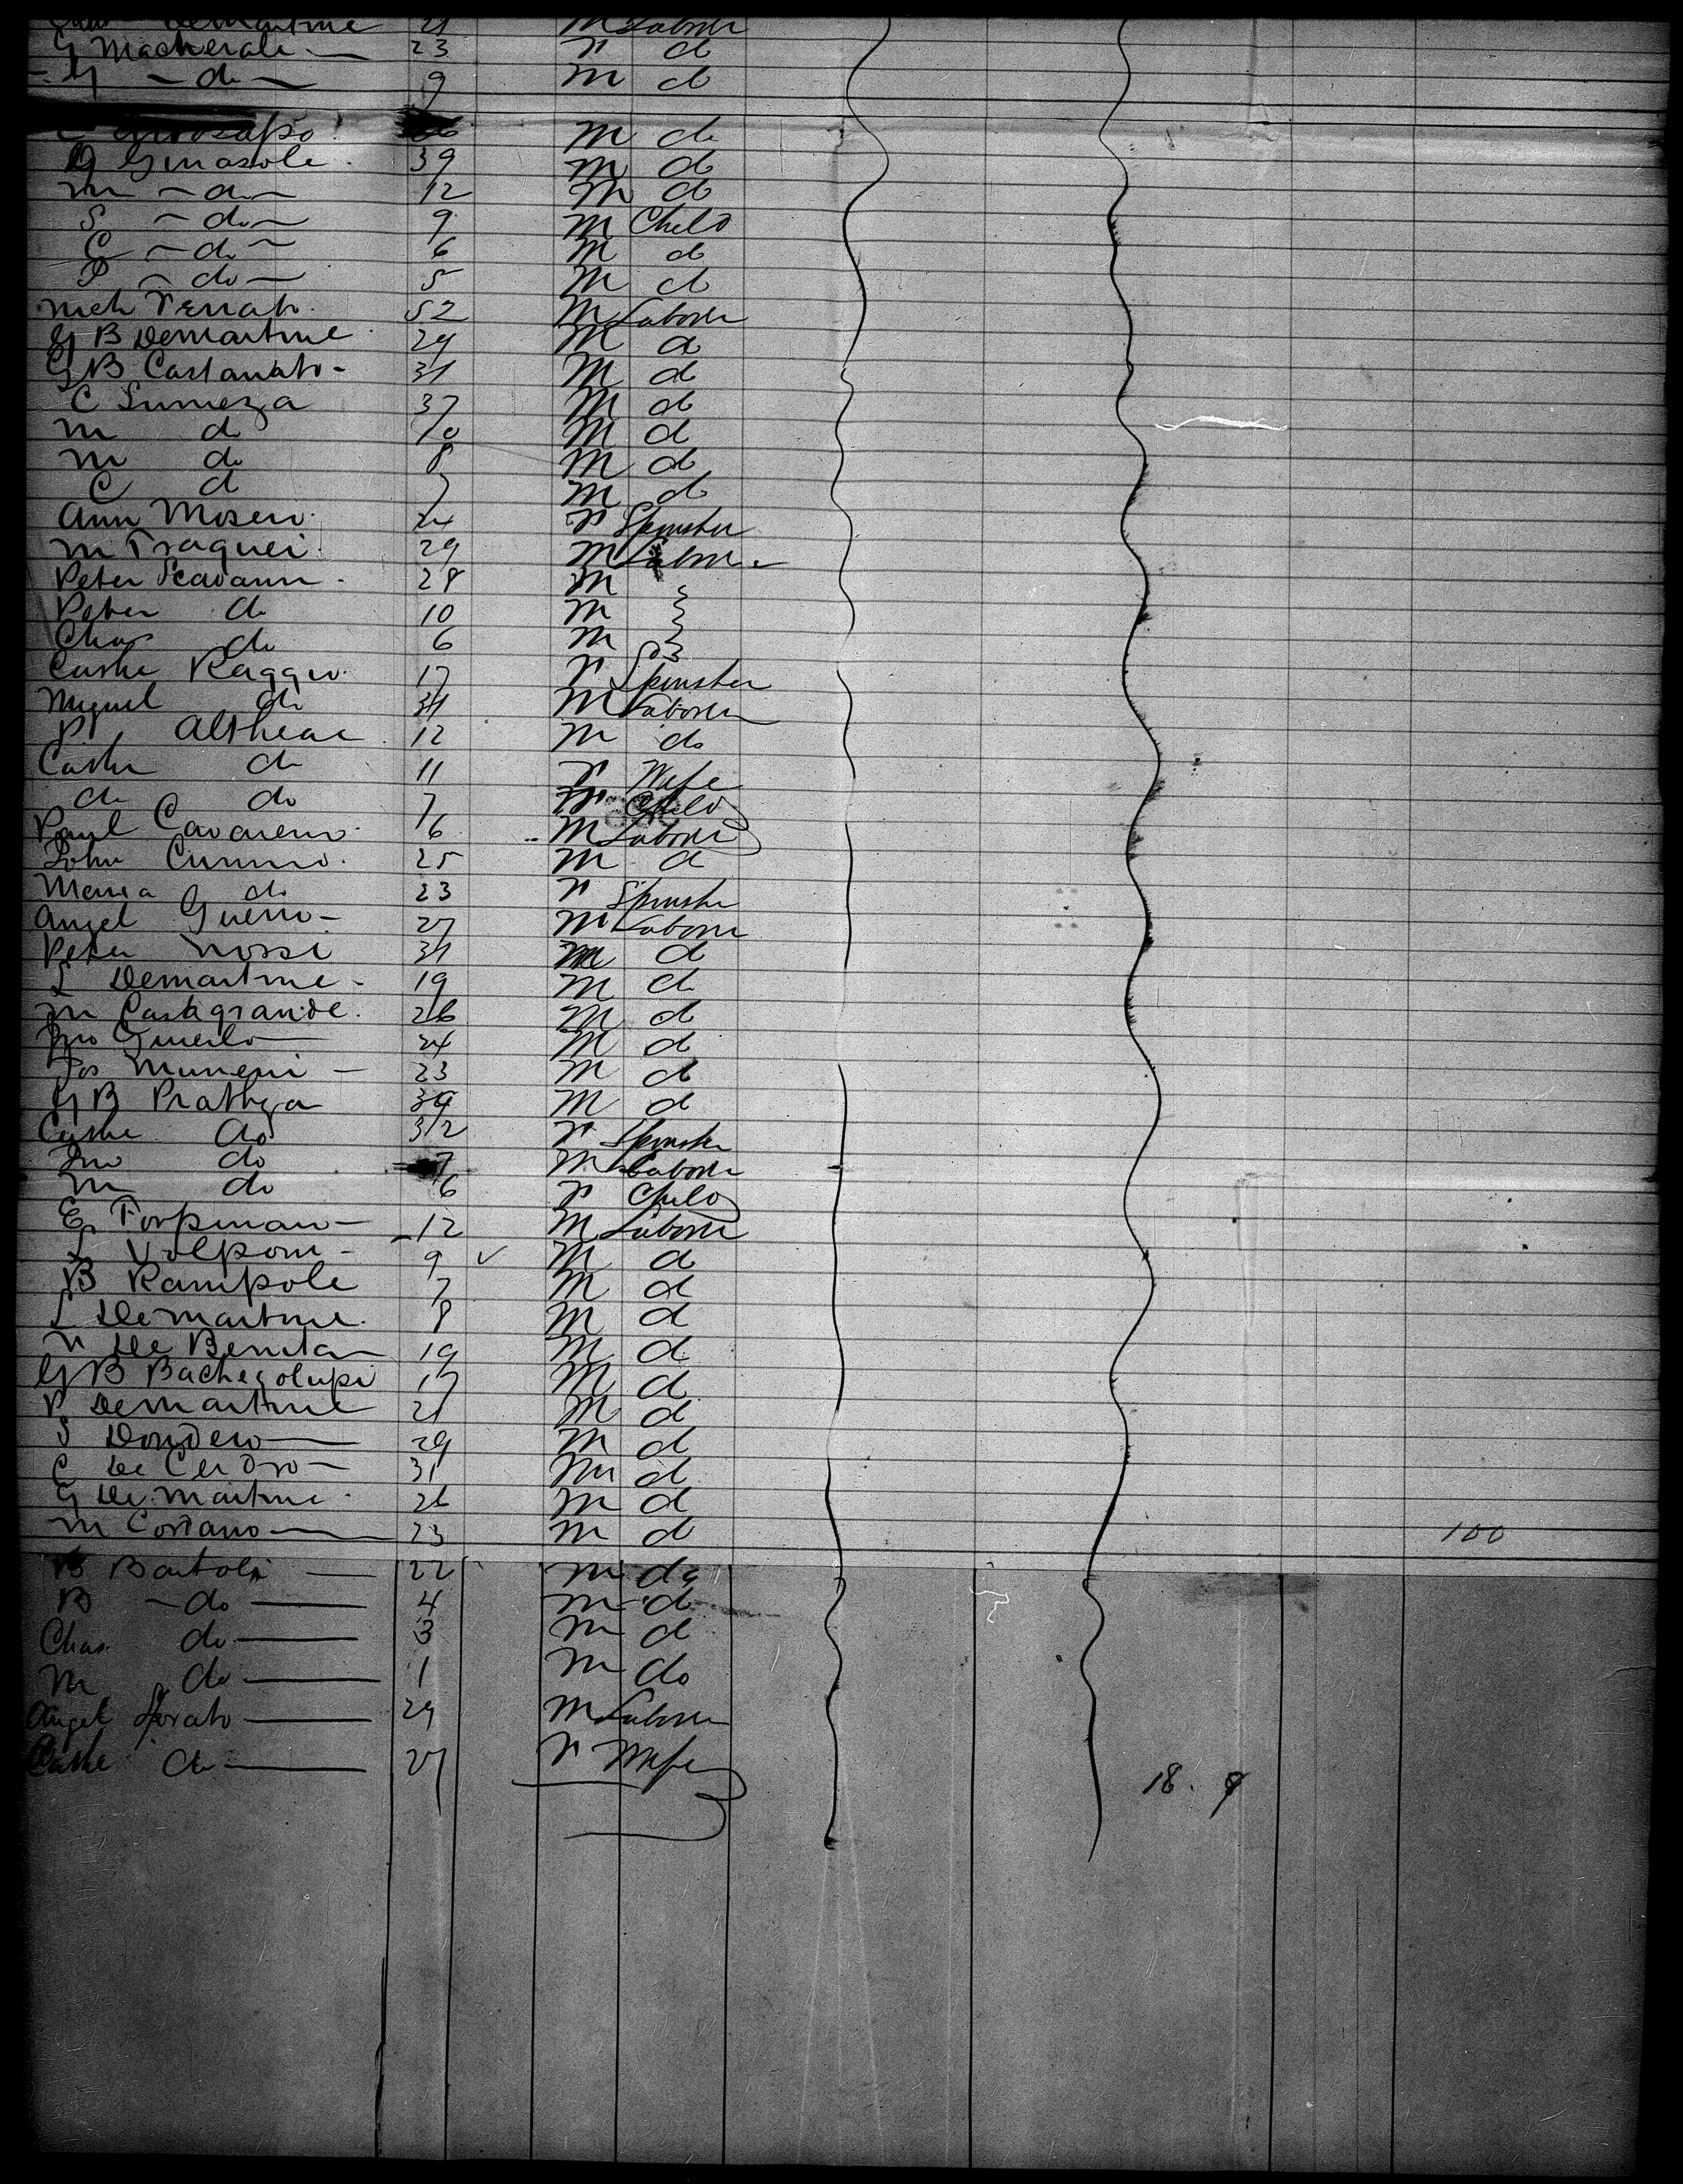 Demartine 21 M Laborer
G Macherale 23 F do
G do 9 M do
M do
G Girasole 39 M do
M do 12 M do
S do 9 M Child
C do 6 M do
P do 5 M do
Ferrato 52 M Laborer
G B Demartine 29 M do
G B Castanato 31 M do
C 37 M do
M do 10 M do
M do 8 M do
C do 7 M do
Ann Moseri 24 F Spinster
M 29 M Laborer
Peter 28 M
Peter do 10 M
Chas do 6 M do
Cathe Raggio 17 F Spinster
Miguel do 34 M Laborer
P Altheae 12 M do
Cathe do 11 F Wife
do do 7 Child
Paul Cavareno 6 M Laborer
John Cunino 25 M do
Maria do 23 F Spinster
Angel Guerro 27 M Laborer
Peter Nossi 31 M do
L Demartine 19 M do
M Castagrande 26 M do
Jno 24 M do
Jos Muneni 23 M do
G B 39 M do
Cathe do 32 F Spinster
Jno do 7 M Laborer
M do 6 F Child
E 12 M Laborer
L Volponi 9 ✓ M do
B Rampole 7 M do
L Demartine 8 M do
N De Benita 19 M do
G B Bachegolupi 17 M do
P Demartine 21 M do
S Dondero 29 M do
C De 31 M do
G De Martine 26 M do
M Costano 23 M do 100
B Bartola 22 M do
B do 4 M do
Chas do 3 M do
M do 1 M do
Angel 29 M Laborer
Cathe do 27 F Wife
18. 9